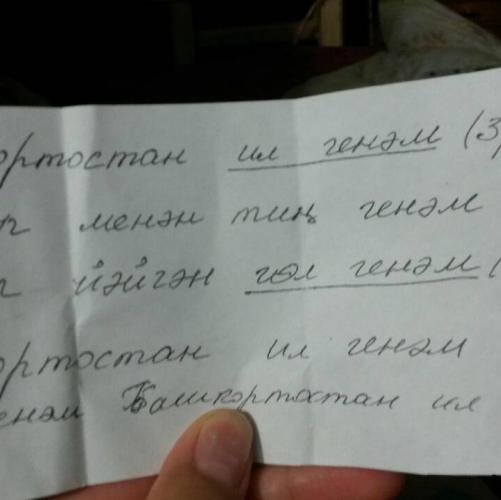 ортостан ил генәм (3)
р менән тиң генәм
р йәйгән гөл генәм (
ортостан ил генәм
генәм Башкортостан ил